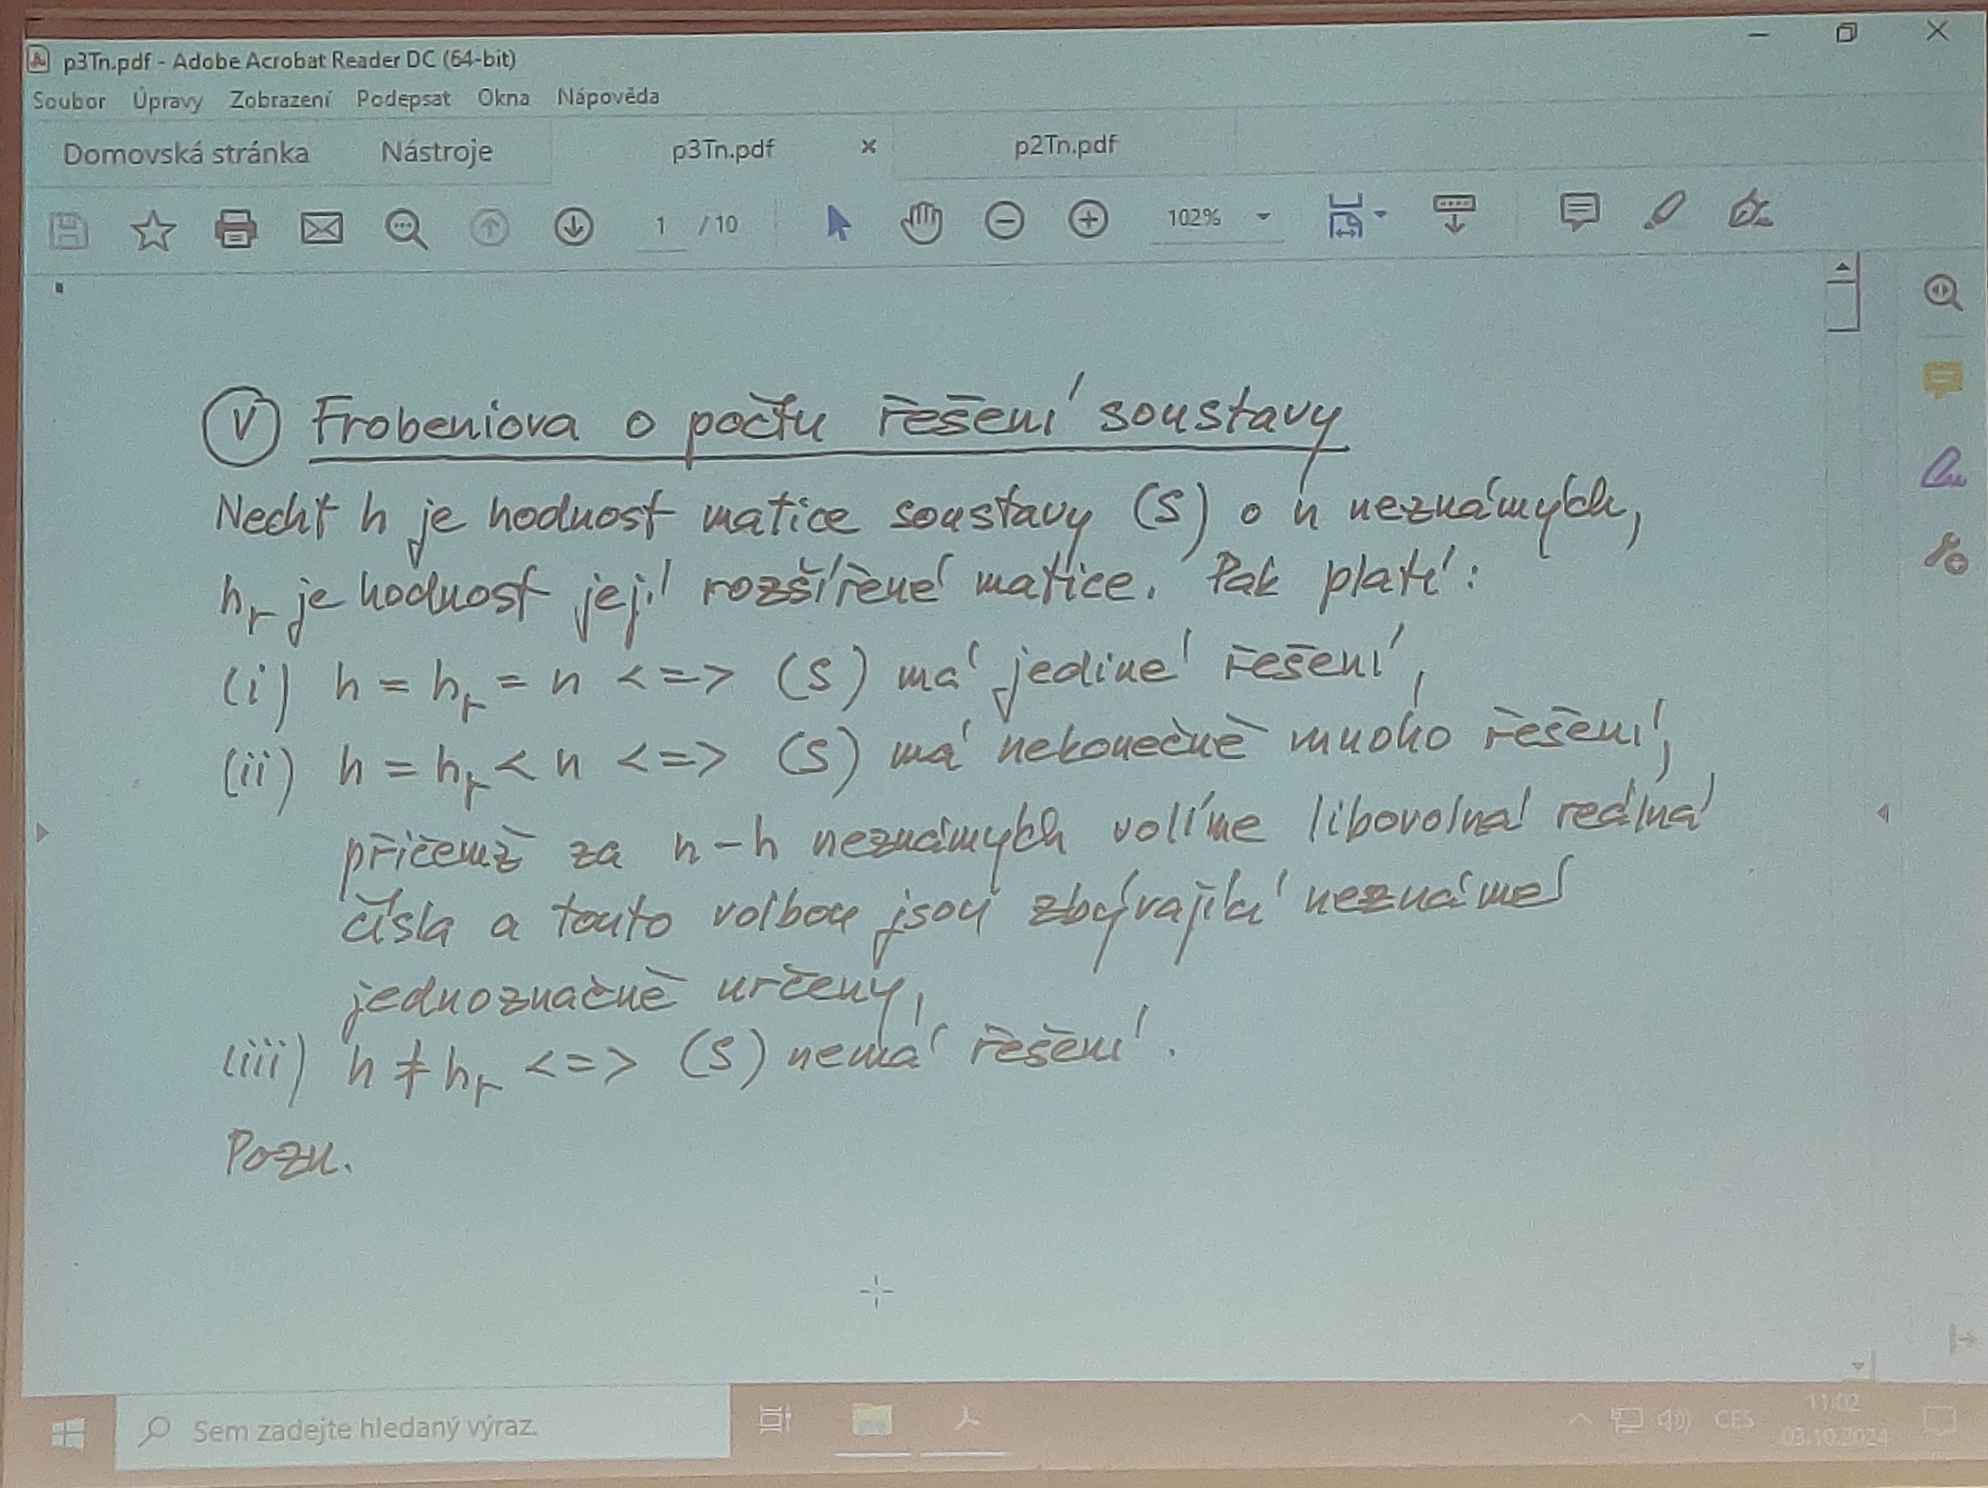 p3Tn.pdf - Adobe Acrobat Reader DC (64-bit)
Soubor Úpravy Zobrazení Podepsat Okna Nápověda
Domovská stránka Nástroje p3Tn.pdf × p2Tn.pdf
1 / 10 102%
(V) Frobeniova o počtu řešení soustavy
Nechť h je hodnost matice soustavy (S) o n neznámých,
hr je hodnost její rozšířené matice. Pak platí:
(i) h = hr = n <=> (S) má jediné řešení,
(ii) h = hr < n <=> (S) má nekonečně mnoho řešení,
přičemž za n-h neznámých volíme libovolná reálná
čísla a touto volbou jsou zbývající neznámé
jednoznačně určeny,
(iii) h ≠ hr <=> (S) nemá řešení.
Pozn.
Sem zadejte hledaný výraz.
CES
11:02
03.10.2024